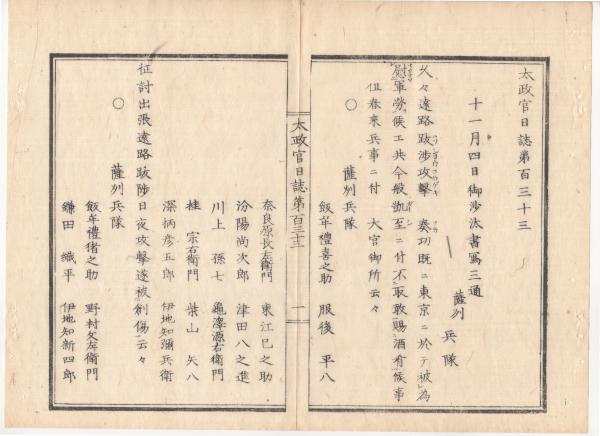 太政官日誌第百三十三
十一月四日御沙汰書寫三通
薩州 兵隊
久々遠路跋渉攻撃 奏功既ニ東京ニ於テ被爲
慰軍勞候ヱ共今般 至ニ付不取敢賜酒肴候事
但春來兵事ニ付 大宮御所云々
〇 薩州兵隊
飯牟禮喜之助 服後 平八
太政官日誌第百三十三 一
奈良原長左衛門 東江巳之助
汾陽尚次郎 津田八之進
川上 孫七 源右衛門
桂 宗右衛門 柴山 矢八
深柄彦五郎 伊地知彌兵衛
征討出張遠路跋陟日夜攻撃遂被創傷云々
〇 薩州兵隊
飯牟禮猪之助 野村矢左衛門
鎌田 織平 伊地知新四郎